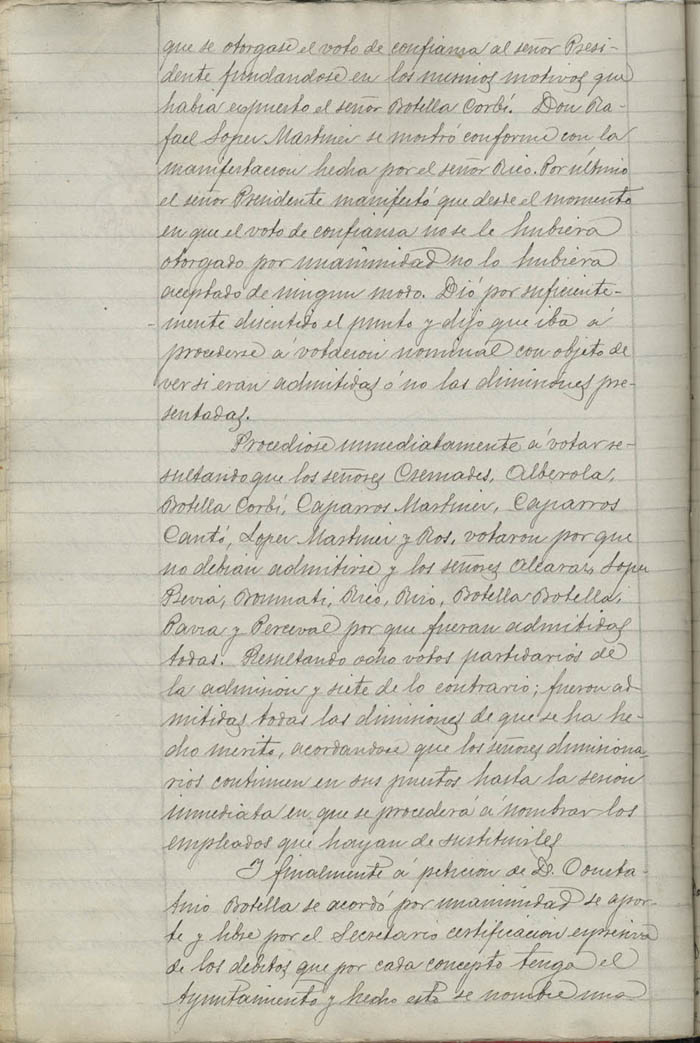 que se otorgase el voto de confianza al señor Presi-
dente fundandose en los mismos motivos que
habia expuesto el señor Botella Corbí. Don Ra-
fael Lopez Martinez se mostró conforme con la
manifestacion hecha por el señor Rico. Por último
el señor Presidente manifestó que desde el momento
en que el voto de confianza no se le hubiera
otorgado por unanimidad no lo hubiera
aceptado de ningun modo. Dió por suficiente-
mente discutido el punto y dijo que iba á
procederse á votacion nominal con objeto de
ver si eran admitidas ó no las dimisiones pre-
sentadas.
Procediose inmediatamente á votar re-
sultando que los señores Csemades, Alberola,
Botella Corbí, Caparros Martinez, Caparros
Cantó, Lopez Martinez y Ros, votaron por que
no debian admitirse y los señores Alcaraz, Lopez
Bonmati, Rico, Botella Botella,
Pavia y Perceval por que fueran admitidas
todas. Resultando ocho votos partidarios de
la admision y siete de lo contrario; fueron ad
mitidas todas las dimisiones de que se ha he-
cho merito, acordandose que los señores dimisiona-
rios continuen en sus puestos hasta la sesion
inmediata en que se procederá á nombrar los
empleados que hayan de sustituirles
I finalmente á peticion de D. Consta-
tino Botella se acordó por unanimidad se apor-
te y libre por el Secretario certificacion expresiva
de los debitos que por cada concepto tenga el
Ayuntamiento y hecho esto se nombre una